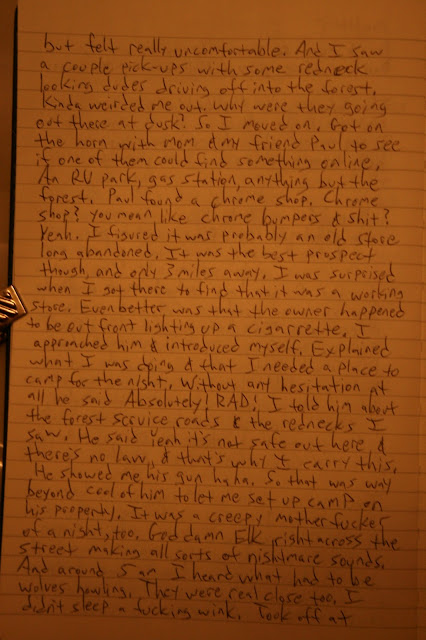 but felt really uncomfortable. And I saw
a couple pick-ups with some redneck
looking dudes driving off into the forest.
Kinda weirded me out. Why were they going
out there at dusk? So I moved on. Got on
the horn with mom & my friend Paul to see
if one of them could find something online.
An RV park, gas station, anything but the
forest. Paul found a chrome shop. Chrome
shop? you mean like chrome bumpers & shit?
Yeah. I figured it was probably an old store
long abandoned. It was the best prospect
though, and only 3 miles away. I was surprised
when I got there to find that it was a working
store. Even better was that the owner happened
to be out front lighting up a cigarrette. I
approached him & introduced myself. Explained
what I was doing & that I needed a place to
camp for the night. Without any hesitation at
all he said Absolutely! RAD! I told him about
the forest service roads & the rednecks I
saw. He said Yeah it's not safe out here &
there's no law, & that's why I carry this.
He showed me his gun haha. So that was way
beyond cool of him to let me set up camp on
his property. It was a creepy motherfucker
of a night, too. God damn Elk right across the
street making all sorts of nightmare sounds.
And around 5 am I heard what had to be
wolves howling. They were real close too. I
didn't sleep a fucking wink. Took off at